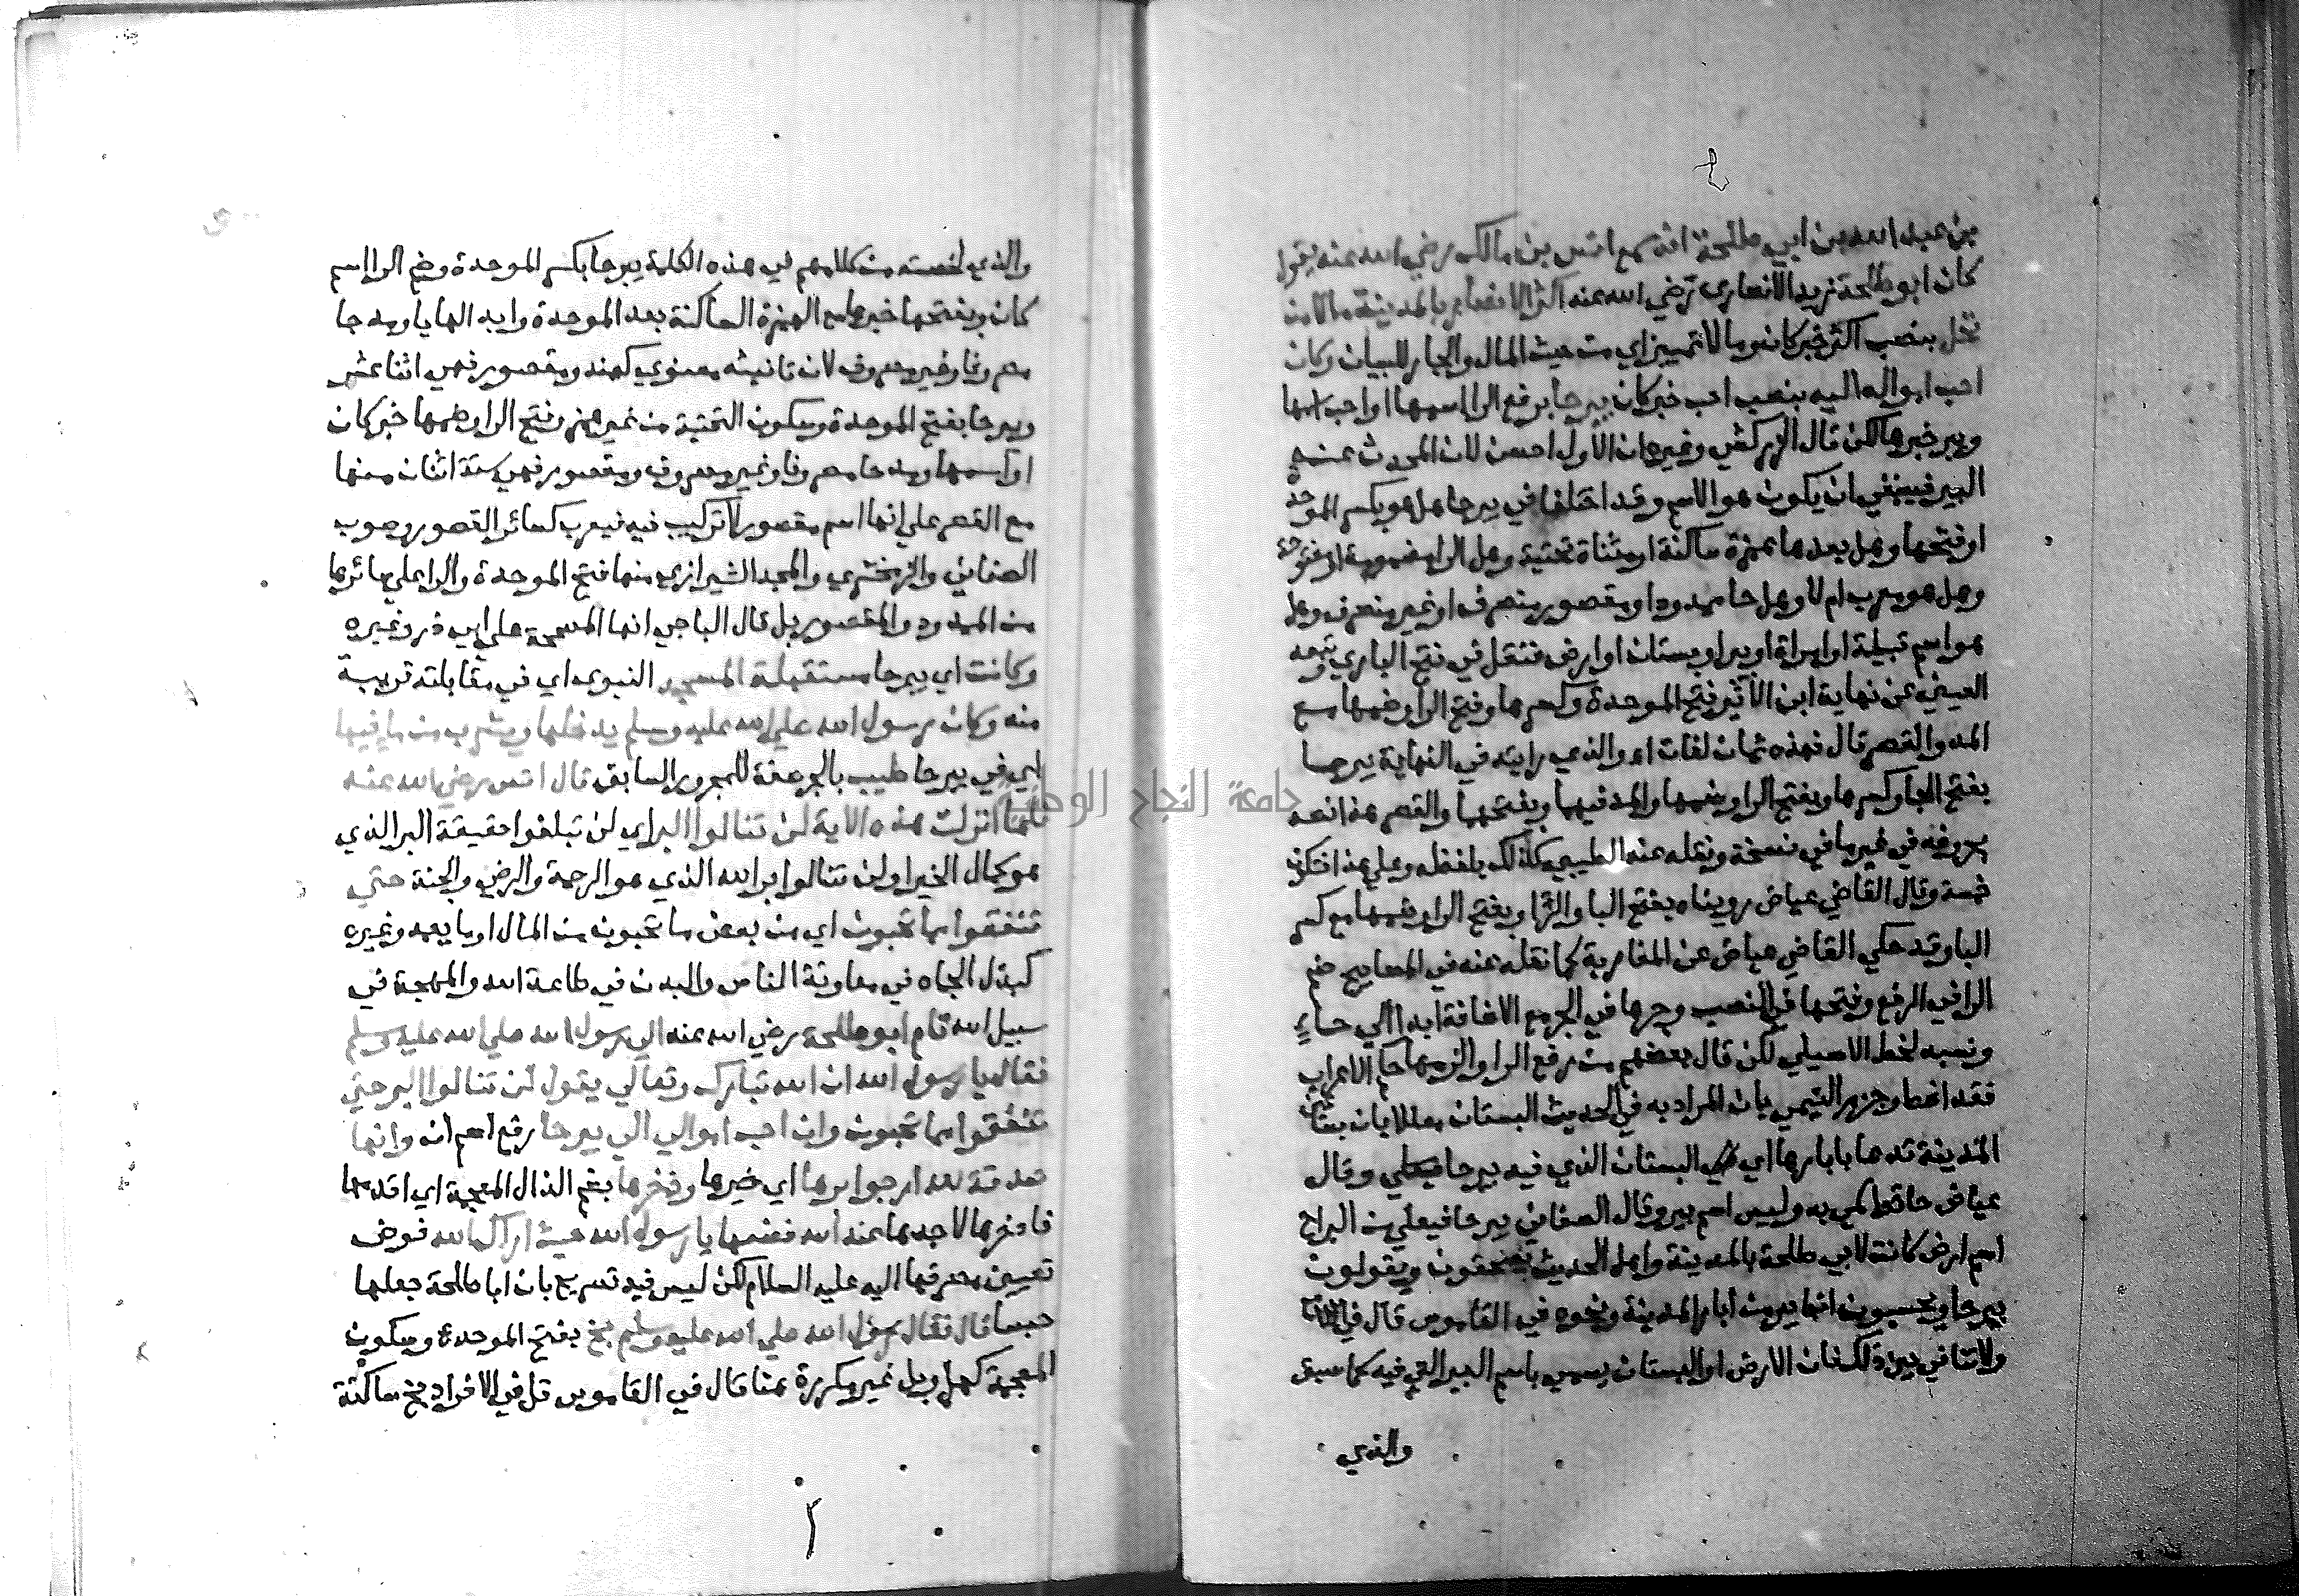 بن عبد الله بن ابي طلحة انه سمع انس بن مالك رضي الله عنه يقول
كان ابو طلحة زيد الانصاري رضي الله عنه اكثر الانصار بالمدينة مالا من
نخل بنصب اكثر خبر كان ومالا تمييز اي من حيث المال والجار للبيان وكان
احب امواله اليه بنصب احب خبر كان بيرحا برفع الرا اسمها او احب اسمها
وبير خبرها لكن قال الزركشي وغيره ان الاول احسن لان المحدث عنه
البير فينبغي ان يكون هو الاسم وقد اختلفا في بيرحا هل هو بكسر الموحدة
او فتحها وهل بعدها همزة ساكنة او مثناة تحتية وهل الرا مضمومة او مفتوحة
وهل هو معرب ام لا وهل حا ممدود او مقصور منصرف او غير منصرف وهل
هو اسم قبيلة او امراة او بير او بستان او ارض فنقل في فتح الباري وتبعه
العيني عن نهاية ابن الاثير فتح الموحدة وكسرها وفتح الرا وضمها مع
المد والقصر قال فهذه ثمان لغات اه والذي رايته في النهاية بيرحا
بفتح البا وكسرها وبفتح الرا وضمها والمد فيهما وبفتحهما والقصر هذا نصه
بحروفه في غيرما في نسخة ونقله عنه الطيبي كذلك بلفظه وعلى هذا فتكون
خمسة وقال القاضي عياض رويناه بفتح البا والرا وبفتح الرا وضمها مع كسر
البا وقد حكي القاضي عياض عن المغاربة كما نقله عنه في المصابيح ضم
الرا في الرفع وفتحها في النصب وجرها في الجر مع الاضافة ابدا الي حاء
ونسبه لخط الاصيلي لكن قال بعضهم من رفع الرا والزمها حكم الاعراب
فقد اخطا وجزم التيمي بان المراد به في الحديث البستان معللا بان بساتين
المدينة تدعا بابارها اي البستان الذي فيه بيرحا وقال
عياض حائط سمي به وليس اسم بير وقال الصغاني بيرحا فيعلي من البراح
اسم ارض كانت لابي طلحة بالمدينة واهل الحديث يصحفون ويقولون
بيرحا ويحسبون انها بير من ابار المدينة ونحوه في القاموس قال في
ولا تنافي بين ذلك فان الارض او البستان يسمي باسم البير التي فيه كما سبق
والذي
والذي لخصته من كلامهم في هذه الكلمة بيرحا بكسر الموحدة وضم الرا اسم
كان وبفتحها خبرها مع الهمزة الساكنة بعد الموحدة وابدالها يا ومد حا
مصروفا وغير مصروف لان تانيثه معنوي كهند ومقصور فهي اثنا عشر
وبيرحا بفتح الموحدة وسكون التحتية من غير همز وفتح الرا وضمها خبر كان
او اسمها ومد حا مصروفا وغير مصروف ومقصور فهي ستة اثنان منها
مع القصر علي انها اسم مقصور لا تركيب فيه فيعرب كسائر المقصور وصوب
الصغاني والزمخشري والمجد الشيرازي منها فتح الموحدة والرا علي سائرها
من الممدود والمقصور بل قال الباجي انها المصححة علي ابي ذر وغيره
وكانت اي بيرحا مستقبلة المسجد النبوي اي في مقابلته قريبة
منه وكان رسول الله صلي الله عليه وسلم يدخلها ويشرب من ما فيها
اي في بيرحا طيب بالجر صفة للمجرور السابق قال انس رضي الله عنه
فلما انزلت هذه الاية لن تنالوا البر اي لن تبلغوا حقيقة البر الذي
هو كمال الخير او لن تنالوا بر الله الذي هو الرحمة والرضي والجنة حتي
تنفقوا مما تحبون اي من بعض ما تحبون من المال او ما يعمه وغيره
كبذل الجاه في معاونة الناس والبدن في طاعة الله والمهجة في
سبيل الله قام ابو طلحة رضي الله عنه الي رسول الله صلي الله عليه وسلم
فقال يا رسول الله ان الله تبارك وتعالي يقول لن تنالوا البر حتي
تنفقوا مما تحبون وان احب اموالي الي بيرحا رفع اسم ان وانها
صدقة لله ارجوا برها اي خيرها وذخرها بضم الذال المعجمة اي اقدمها
فادخرها لاجدها عند الله فضعها يا رسول الله حيث اراك الله فوض
تعيين مصرفها اليه عليه السلام لكن ليس فيه تصريح بان ابا طلحة جعلها
حبسا قال فقال رسول الله صلي الله عليه وسلم بخ بفتح الموحدة وسكون
المعجمة كهل وبل غير مكررة هنا قال في القاموس قل في الافراد بخ ساكنة
جامعة النجاح الوطنية